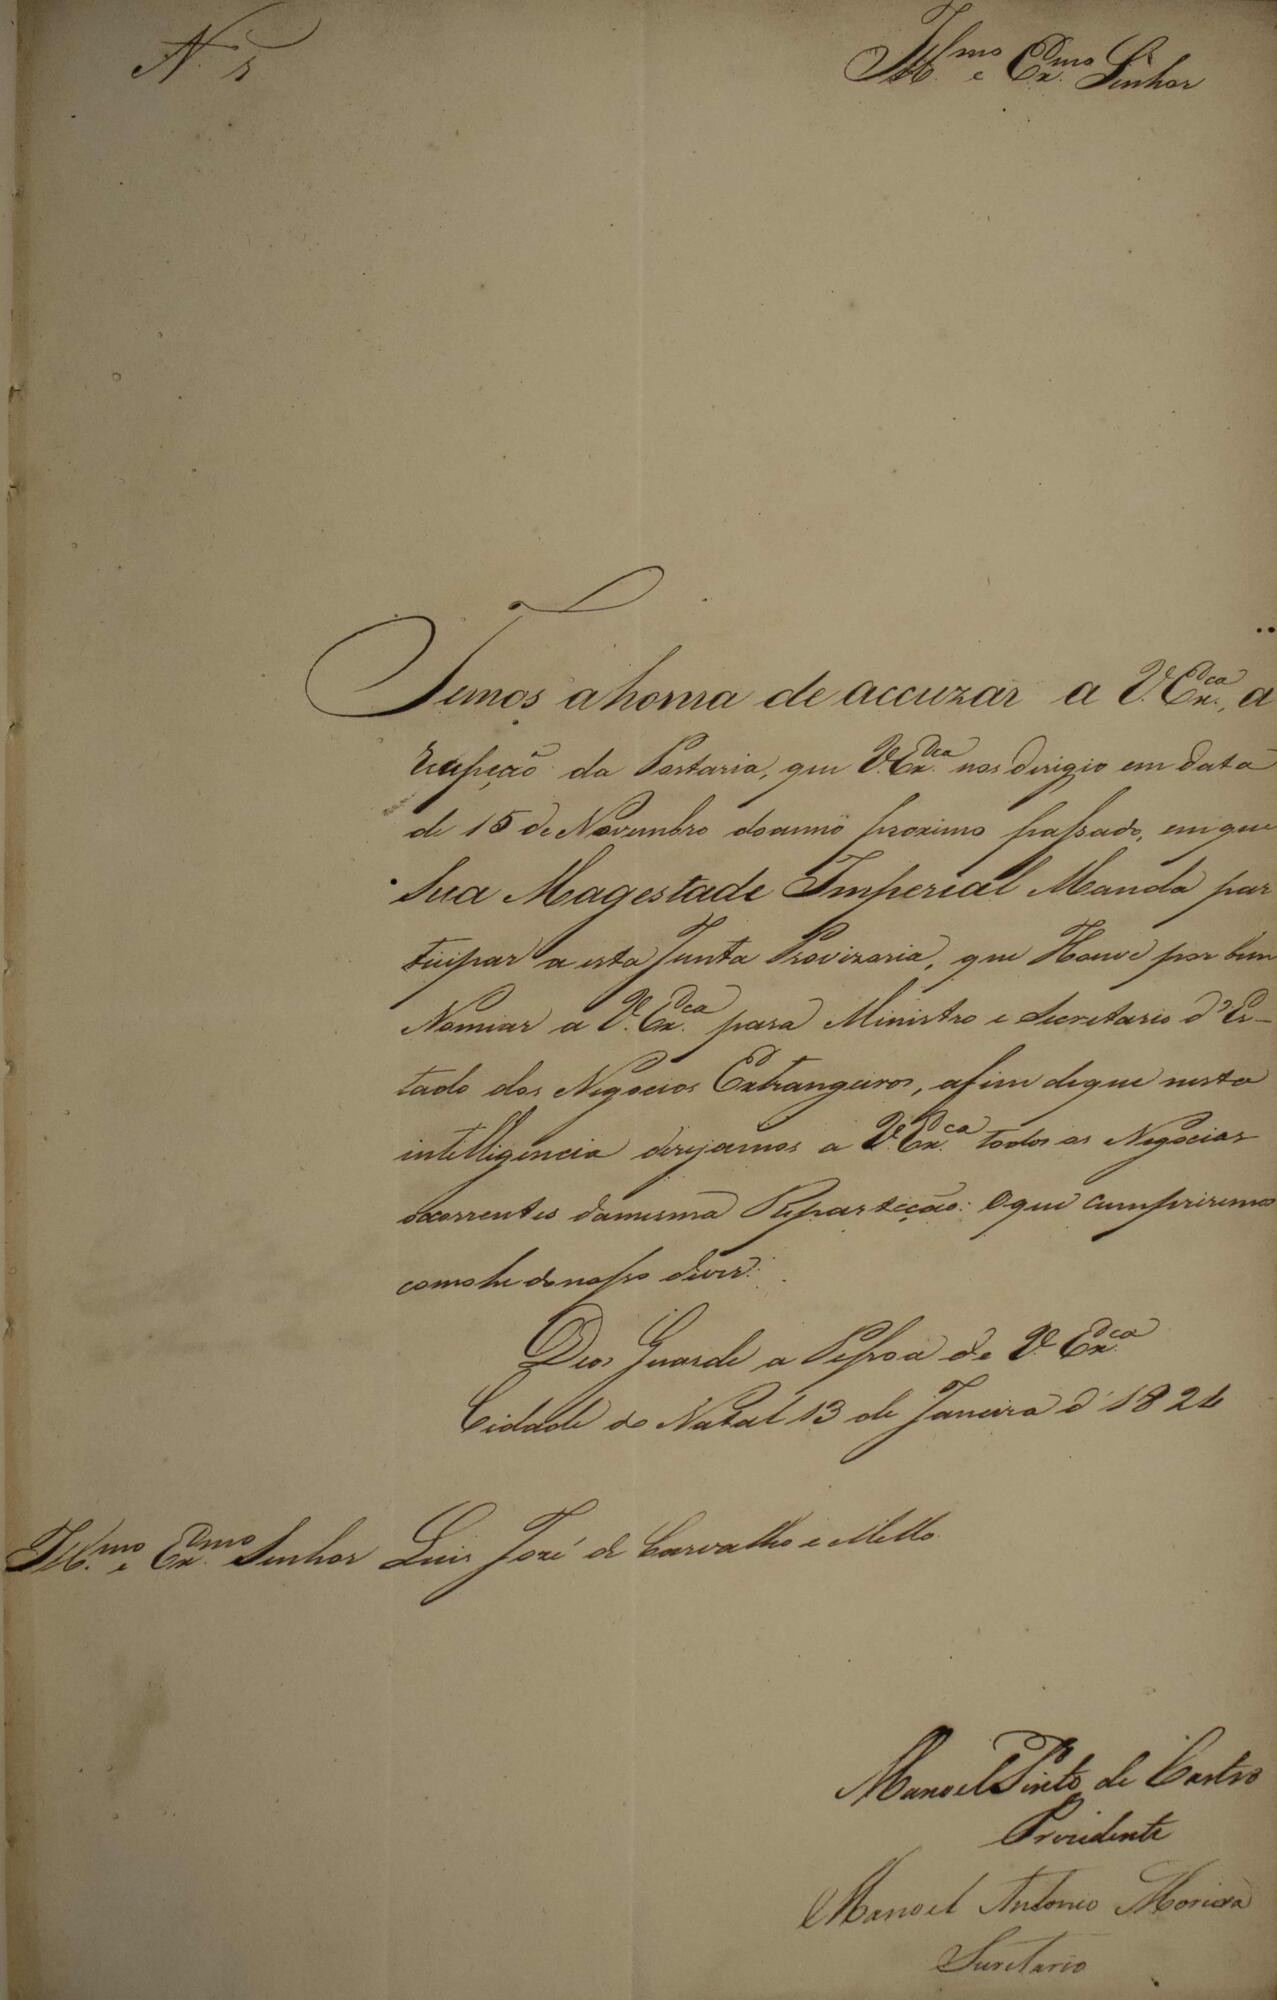 N. 5
Ill.mo e Ex.mo Senhor
Temos a honra de accuzar a V. Ex.ca, a
recepção da Portaria, que V. Ex.ca nos dirigio em data
de 15 de Novembro do anno proximo passado, em que
Sua Magestade Imperial Manda par
ticipar a esta Junta Provizoria, que Houve por bem
Nomiar a V. Ex.ca para Ministro e Secretario d'Es-
tado dos Negocios Extrangeiros, afim deque nesta
intelligencia dirijamos a V. Ex.ca todos os Negocios
occorrentes damesma Repartição: Oque cumpriremos
como he do nosso dever.
Deos Guarde a Pessoa de V. Ex.ca
Cidade do Natal 13 de Janeiro d'1824
Ill.mo e Ex.mo Senhor Luis José de Carvalho e Mello
Manoel Pinto de Castro
Prezidente
Manoel Antonio Moreira
Secretario